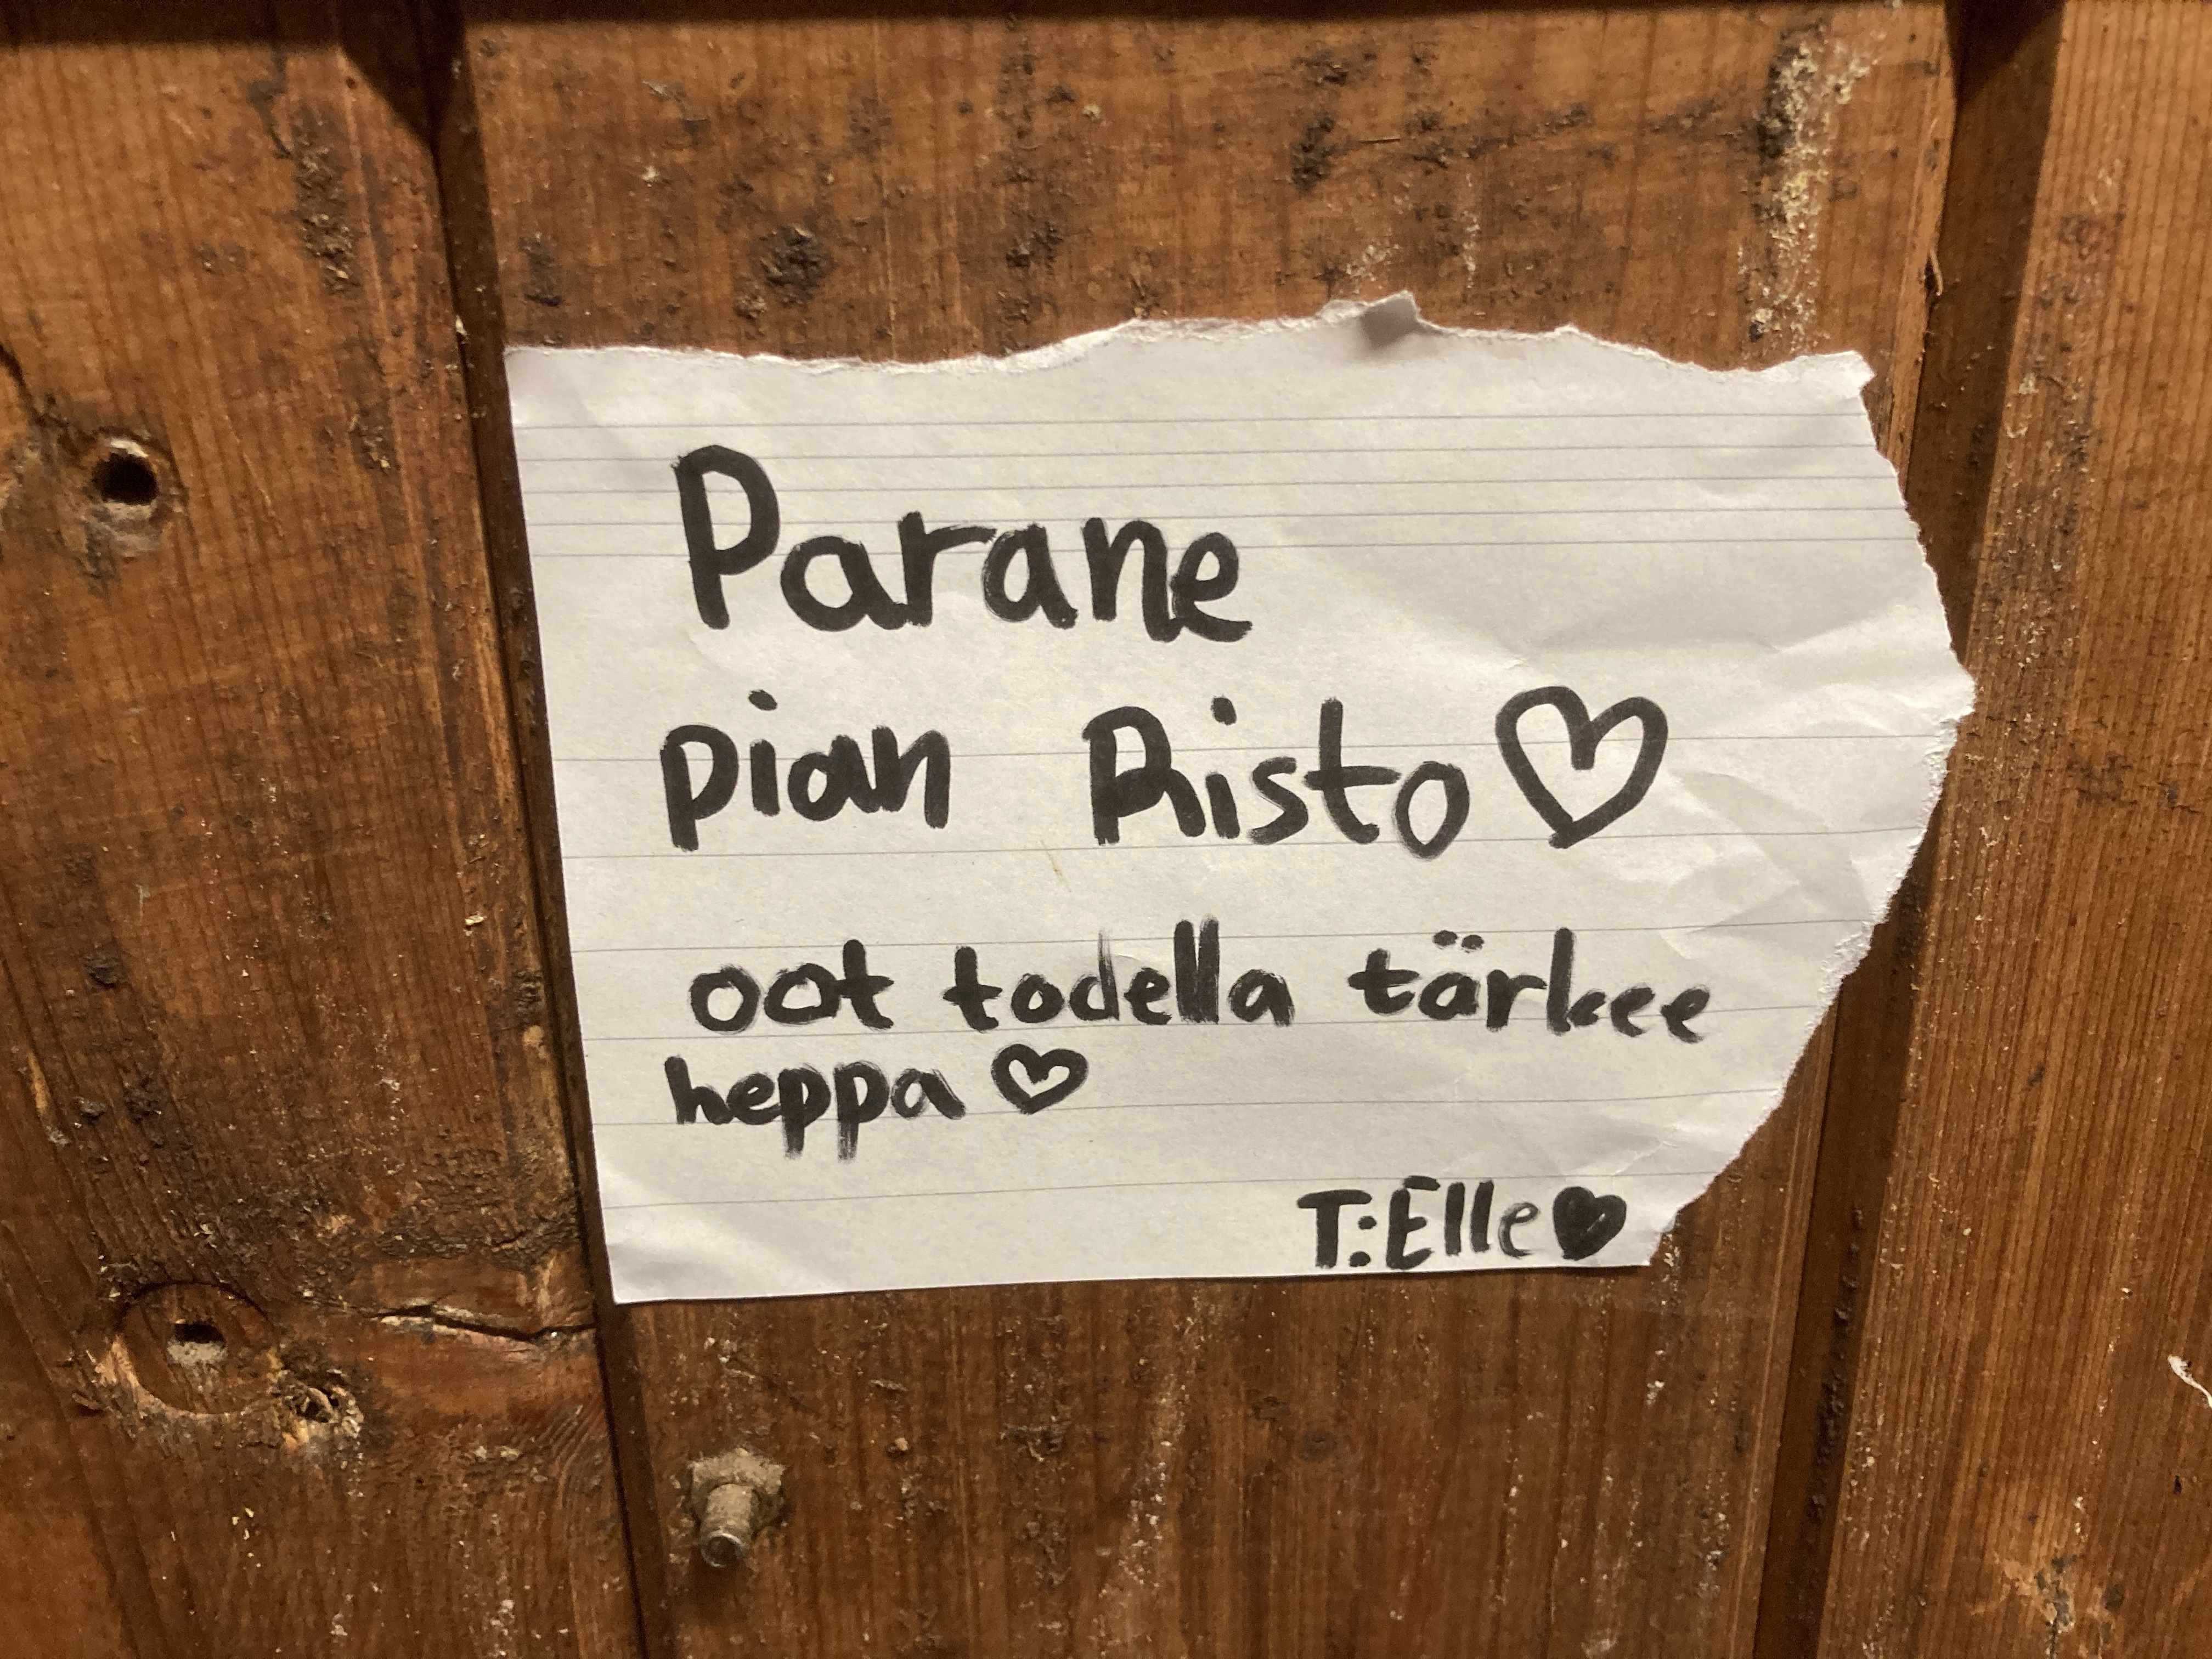 Parane
pian Risto♡
oot todella tärkee
heppa ♡
T: Elle♥